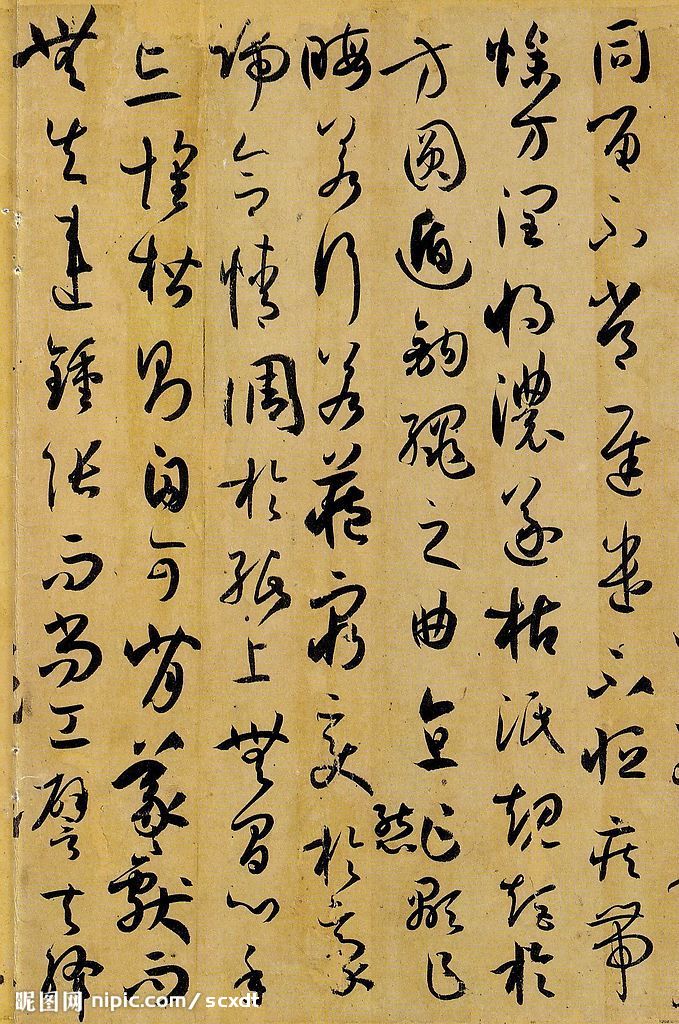 同留不常遲遣不恒疾帶
燥方潤將濃遂枯泯規矩於
方圓遁鉤繩之曲直乍顯乍
晦若行若藏窮變態於豪
端合情調於紙上無間心手
忘懷楷則自可背羲獻而
無失違鍾張而尚工譬夫絳
昵图网 nipic.com/scxdt